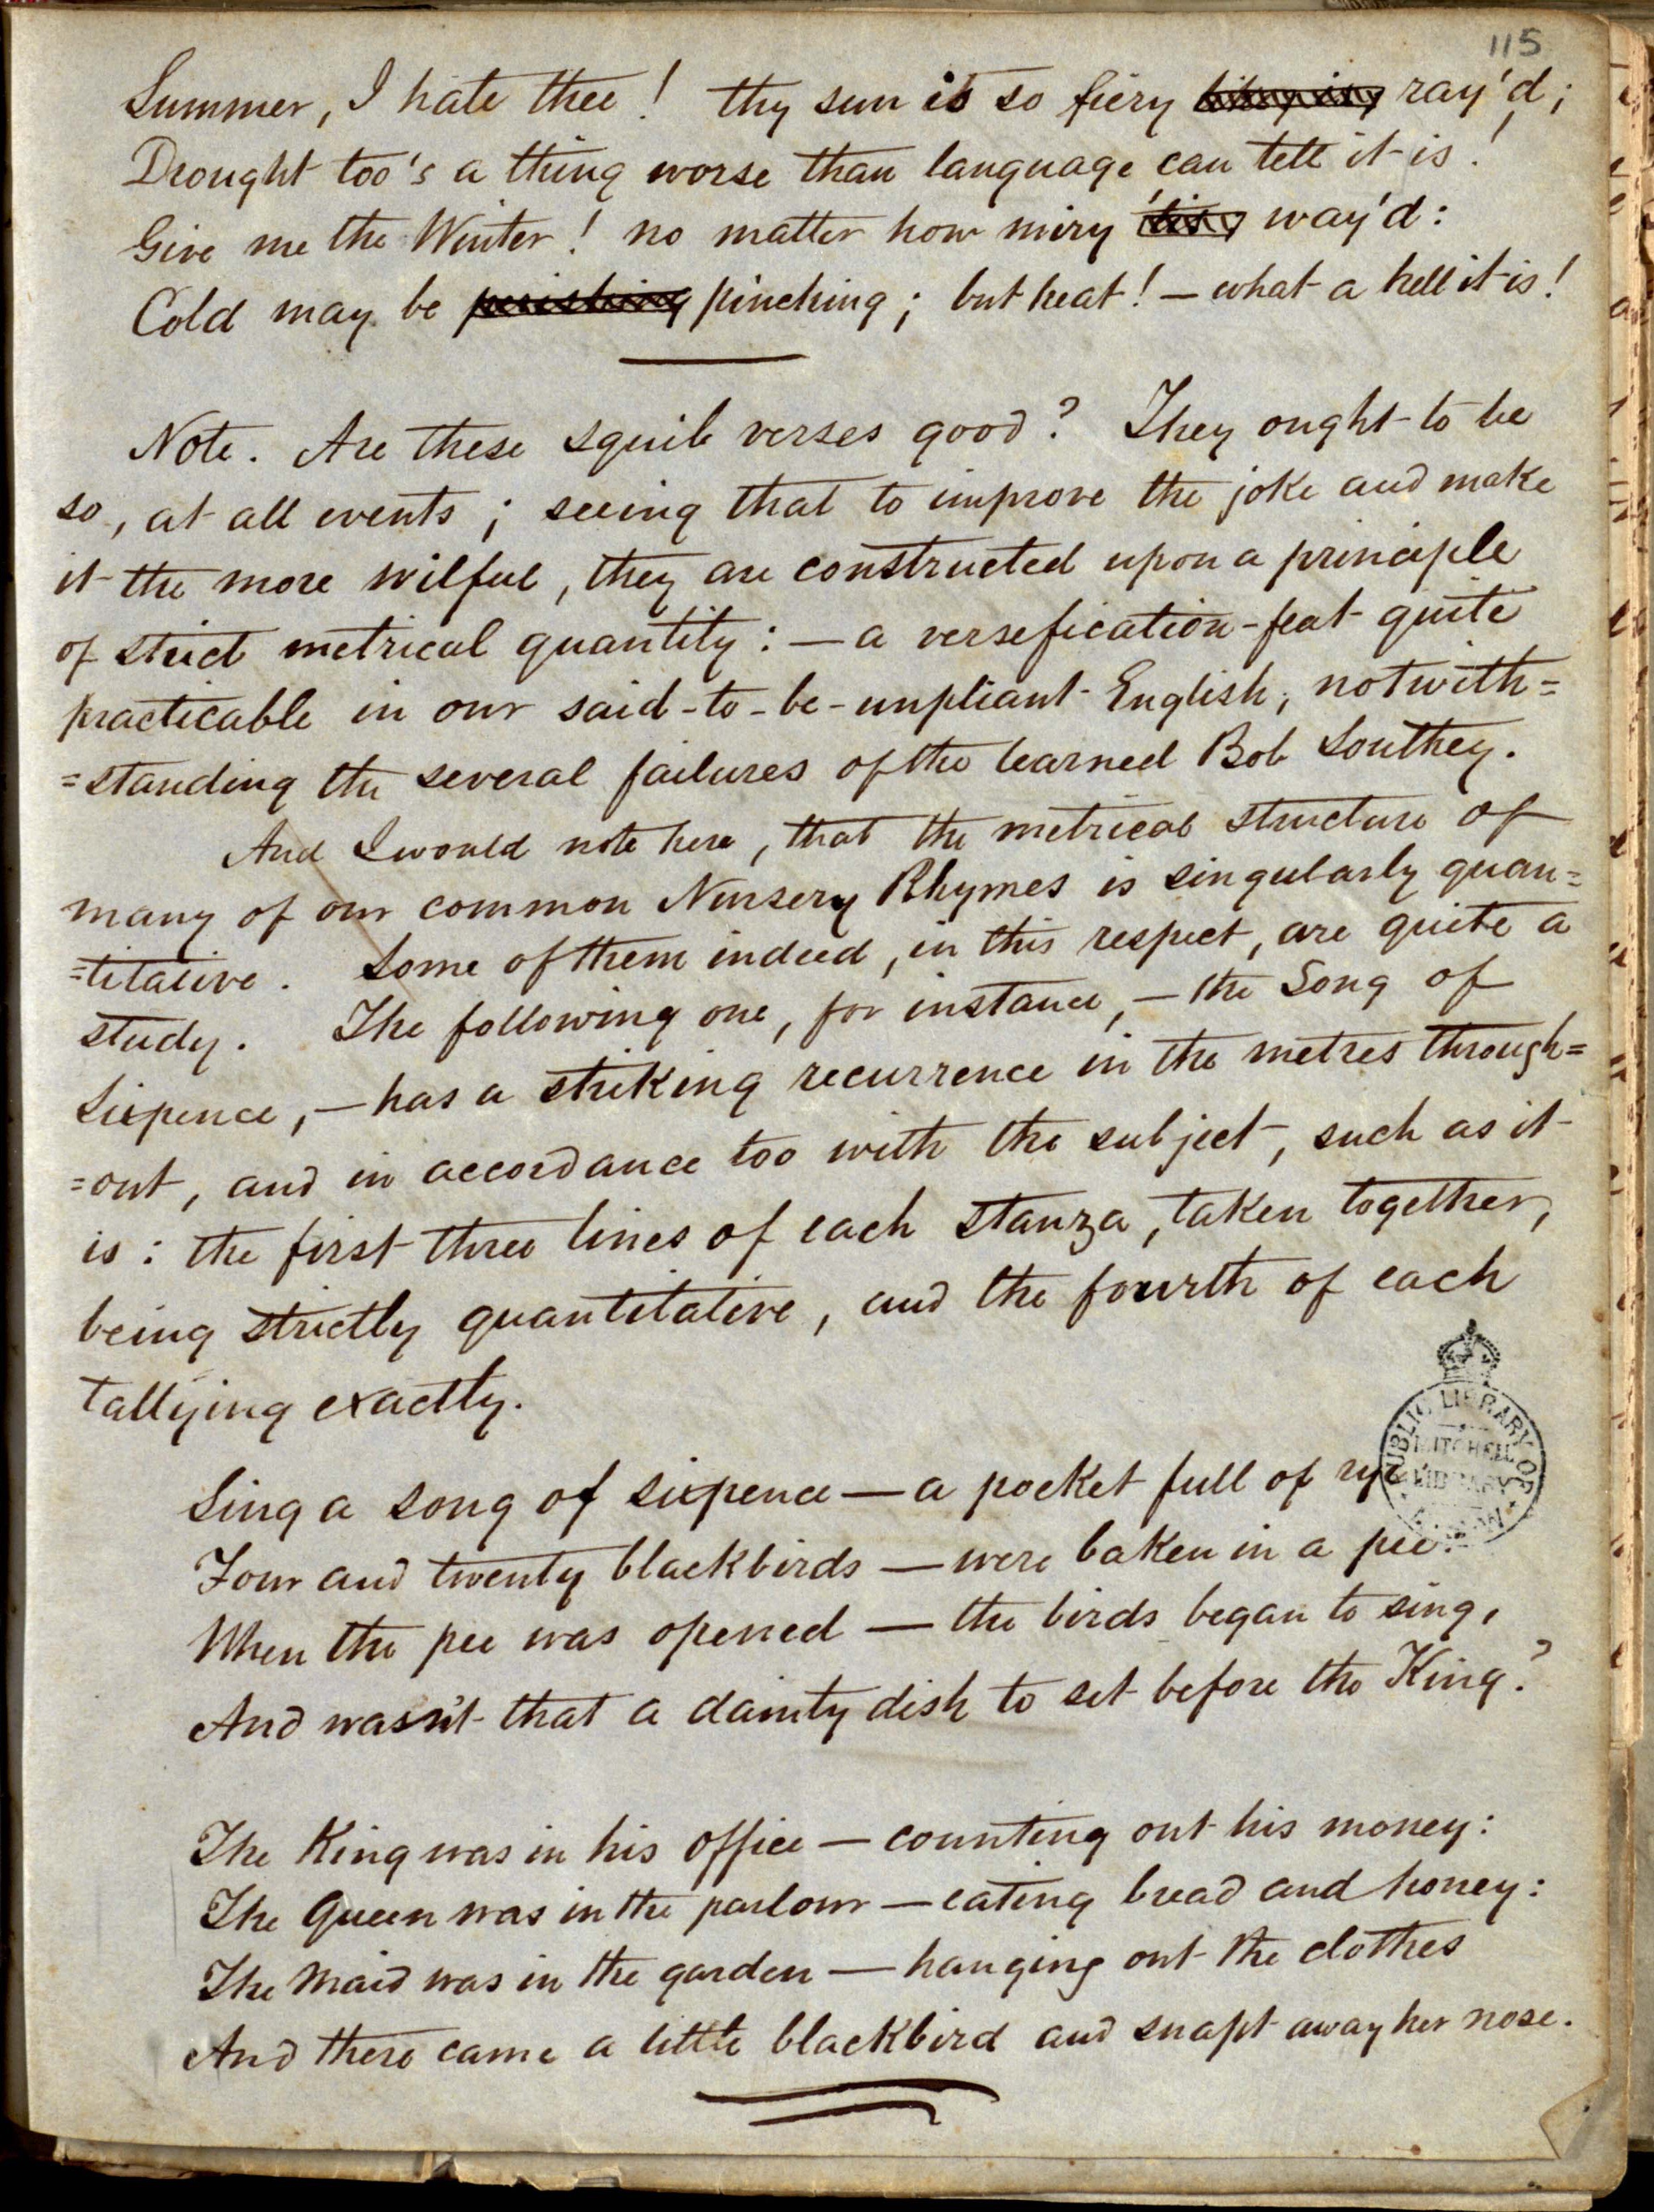 115
Summer, I hate thee! thy sun is so fiery ray'd;
Drought too's a thing worse than language can tell it is!
Give me the Winter! no matter how miry 'tis way'd:
Cold may be perishing pinching; but heat! — what a hell it is!
Note. Are these squib verses good? They ought to be
so, at all events; seeing that to improve the joke and make
it the more wilful, they are constructed upon a principle
of strict metrical quantity: — a versefication-feat quite
practicable in our said-to-be-unpliant English, notwith=
=standing the several failures of the learned Bob Southey.
And I would note here, that the metrical structure of
many of our common Nursery Rhymes is singularly quan=
=titative. Some of them indeed, in this respect, are quite a
study. The following one, for instance, — the Song of
Sixpence, — has a striking recurrence in the metres through=
=out, and in accordance too with the subject, such as it
is: the first three lines of each stanza, taken together,
being strictly quantitative, and the fourth of each
tallying exactly.
Sing a song of sixpence — a pocket full of rye
Four and twenty blackbirds — were baken in a pie.
When the pie was opened — the birds began to sing,
And wasn't that a dainty dish to set before the King?
The King was in his office — counting out his money:
The Queen was in the parlour — eating bread and honey:
The Maid was in the garden — hanging out the clothes
And there came a little blackbird and snapt away her nose.
PUBLIC LIBRARY OF
MITCHELL
LIBRARY